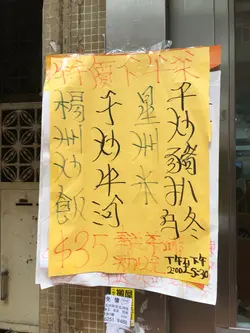 特價下午茶
干炒豬扒乌冬
星州米
干炒牛河
楊州炒飯
$35
下午到下午
2:00 5:30